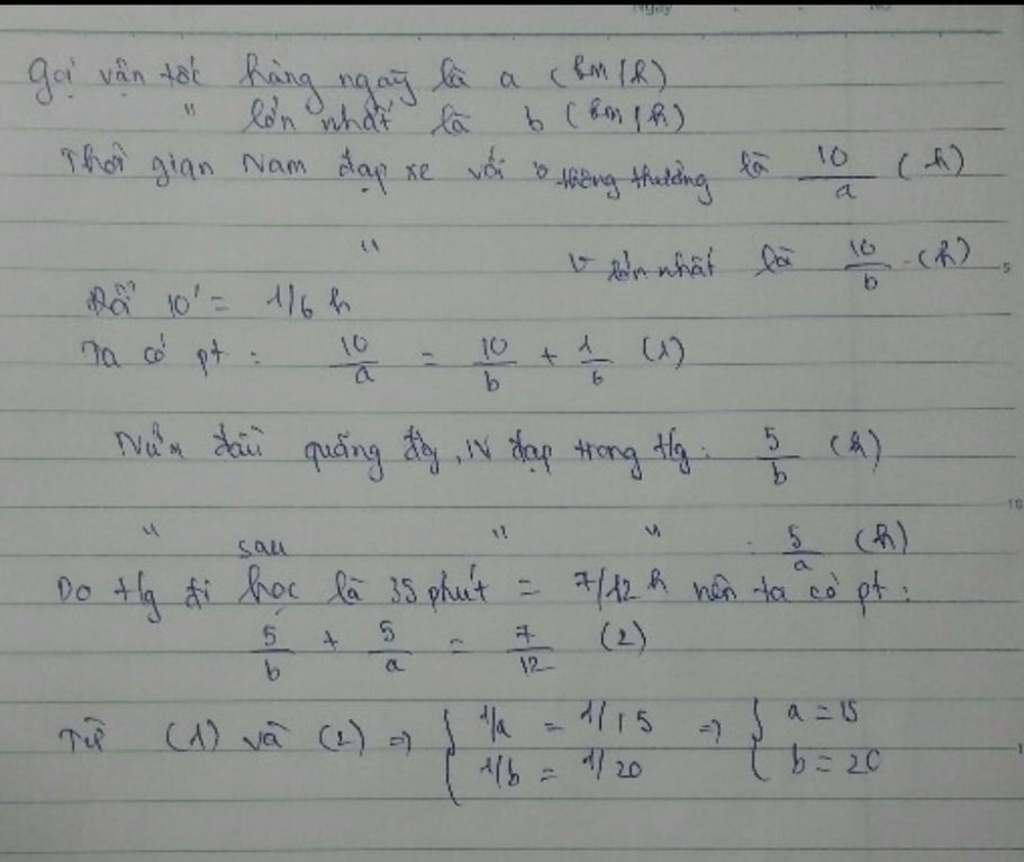 Gọi vận tốc hàng ngày là a (km/h)
" lớn nhất là b (km/h)
Thời gian Nam đạp xe với v thông thường là 10/a (h)
" v lớn nhất là 10/b (h)
Đổi 10' = 1/6 h
Ta có pt : 10/a = 10/b + 1/6 (1)
Nửa đầu quãng đg, N đạp trong t/g : 5/b (h)
" sau " " : 5/a (h)
Do t/g đi học là 35 phút = 7/12 h nên ta có pt :
5/b + 5/a = 7/12 (2)
Từ (1) và (2) => { 1/a = 1/15 => { a = 15
1/b = 1/20 b = 20